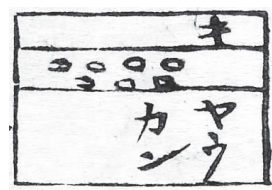 ヤウ
カン